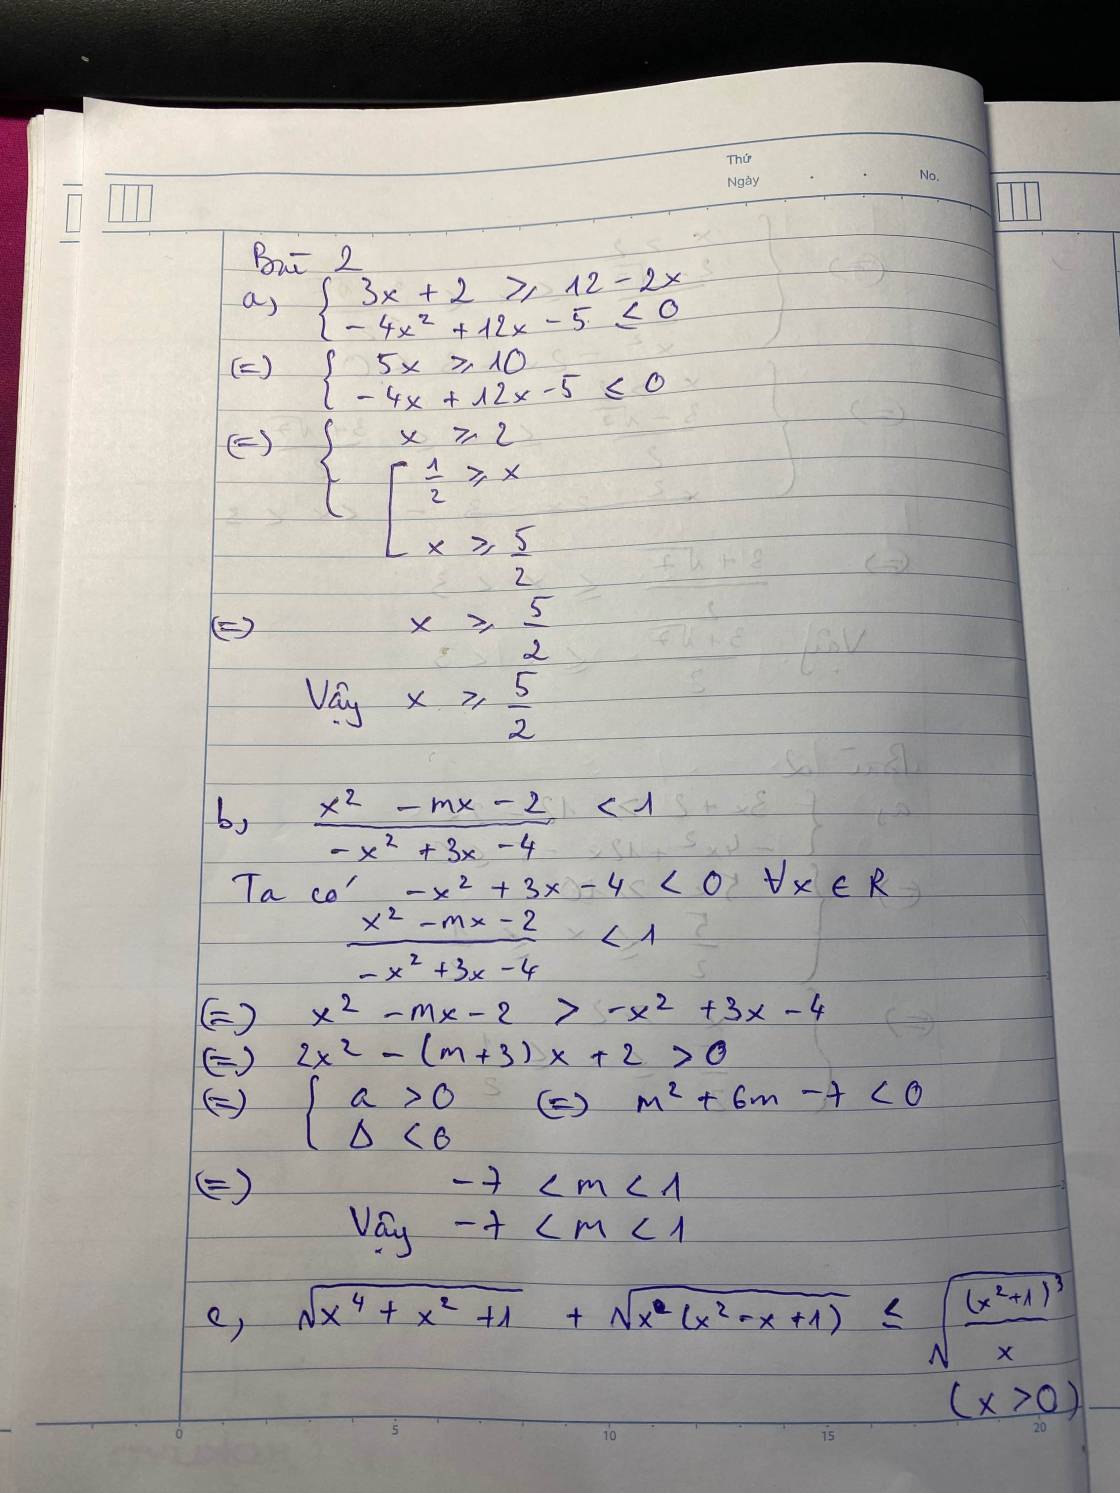 Thứ
Ngày . . No.
Bài 2
a, { 3x + 2 ≥ 12 - 2x
- 4x² + 12x - 5 ≤ 0
(=) { 5x ≥ 10
- 4x + 12x - 5 ≤ 0
(=) { x ≥ 2
[ 1/2 ≥ x
x ≥ 5/2
(=) x ≥ 5/2
Vậy x ≥ 5/2
b, (x² - mx - 2)/(-x² + 3x - 4) < 1
Ta có -x² + 3x - 4 < 0 ∀x ∈ R
(x² - mx - 2)/(-x² + 3x - 4) < 1
(=) x² - mx - 2 > -x² + 3x - 4
(=) 2x² - (m+3)x + 2 > 0
(=) { a > 0 (=) m² + 6m - 7 < 0
Δ < 0
(=) -7 < m < 1
Vậy -7 < m < 1
c, √(x⁴ + x² + 1) + √(x(x² - x + 1)) ≤ √((x²+1)³/x)
(x > 0)
0 5 10 15 20